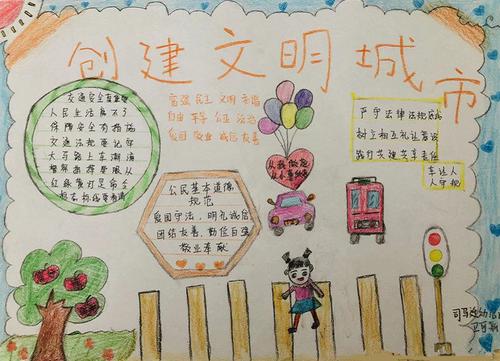 创建文明城市
交通安全真重要
人民生活离不了
保障安全有措施
交通法规要记牢
大马路上车潮涌
红绿黄灯是命令
富强 民主 文明 和谐
自由 平等 公正 法治
爱国 敬业 诚信 友善
从我做起
从小事做起
公民基本道德
规范
爱国守法,明礼诚信
团结友善,勤俭自强
敬业奉献
严守法律法规底线
树立相互礼让意识
践行共建共享责任
车让人
人守规